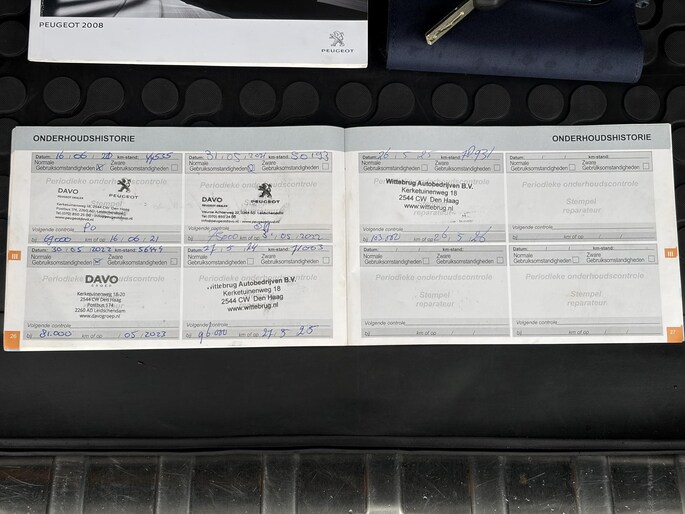 PEUGEOT 2008
PEUGEOT
ONDERHOUDSHISTORIE
Datum: 16 . 06 . 20 km-stand:
Normale Gebruiksomstandigheden
Zware Gebruiksomstandigheden
Periodieke onderhoudscontrole
DAVO
PEUGEOT
Volgende controle
bij 69000 km of op 16 . 06 . 21
31 . 05 . 2021 50193
Normale Gebruiksomstandigheden
Zware Gebruiksomstandigheden
Periodieke onderhoudscontrole
DAVO
PEUGEOT
75000 31 . 05 . 2022
Datum: 30 . 05 . 2022 km-stand:
Normale Gebruiksomstandigheden
Zware Gebruiksomstandigheden
Periodieke onderhoudscontrole
DAVO
Kerketuinenweg 18-20
2544 CW Den Haag
Postbus 174
2260 AD Leidschendam
www.davogroep.nl
Volgende controle
bij 81.000 km of op . 05 . 2023
Normale Gebruiksomstandigheden
Zware Gebruiksomstandigheden
Wittebrug Autobedrijven B.V.
Kerketuinenweg 18
2544 CW Den Haag
www.wittebrug.nl
Volgende controle
bij 96000 km of op 27 . 5 . 25
ONDERHOUDSHISTORIE
26 . 5 . 25
Normale Gebruiksomstandigheden
Zware Gebruiksomstandigheden
Wittebrug Autobedrijven B.V.
Kerketuinenweg 18
2544 CW Den Haag
www.wittebrug.nl
Volgende controle
km of op 26 . 5 . 26
Datum: km-stand:
Normale Gebruiksomstandigheden
Zware Gebruiksomstandigheden
Periodieke onderhoudscontrole
Stempel
reparateur
Volgende controle
bij km of op
Datum: km-stand:
Normale Gebruiksomstandigheden
Zware Gebruiksomstandigheden
Periodieke onderhoudscontrole
Stempel
reparateur
Volgende controle
bij km of op
Datum: km-stand:
Normale Gebruiksomstandigheden
Zware Gebruiksomstandigheden
Periodieke onderhoudscontrole
Stempel
reparateur
Volgende controle
bij km of op